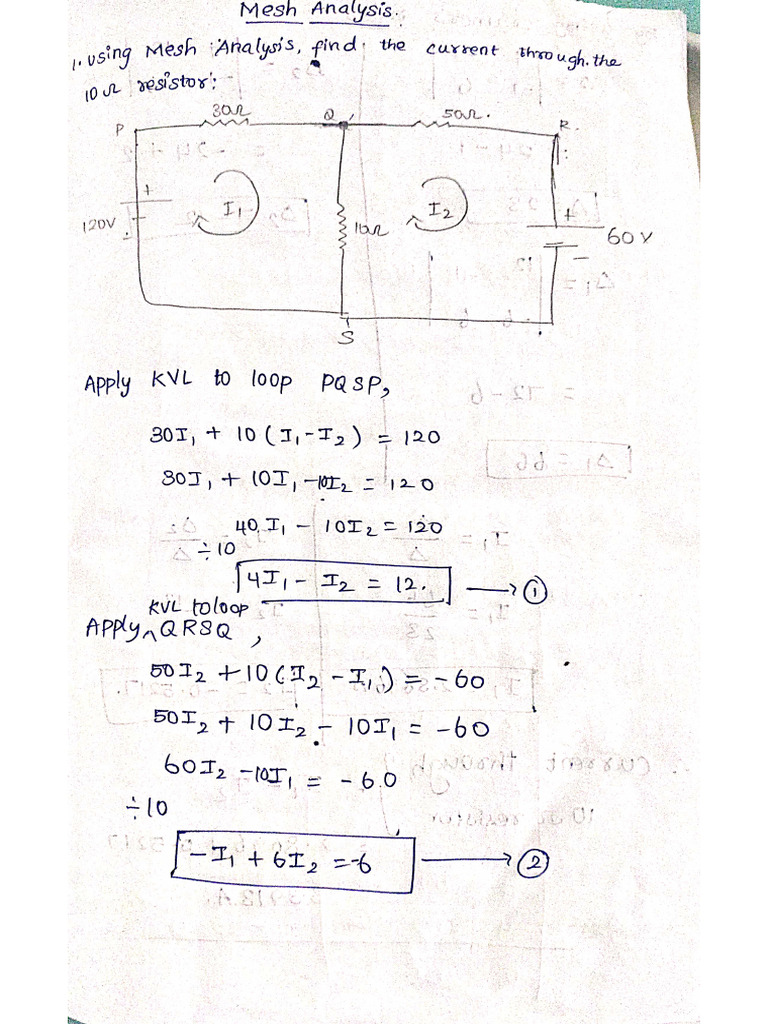 Mesh Analysis.
1. Using Mesh Analysis, find the current through the
10Ω resistor:
30Ω
50Ω.
P
Q
R.
+
I1
I2
120V
10Ω
+
60V
-
S
Apply KVL to loop PQSP,
30I1 + 10(I1-I2) = 120
30I1 + 10I1 -10I2 = 120
40I1 - 10I2 = 120
÷10
4I1 - I2 = 12. → ①
KVL to loop
Apply ^ QRSQ,
50I2 + 10(I2 - I1) = -60
50I2 + 10I2 - 10I1 = -60
60I2 -10I1 = -60
÷10
-I1 + 6I2 = -6 → ②